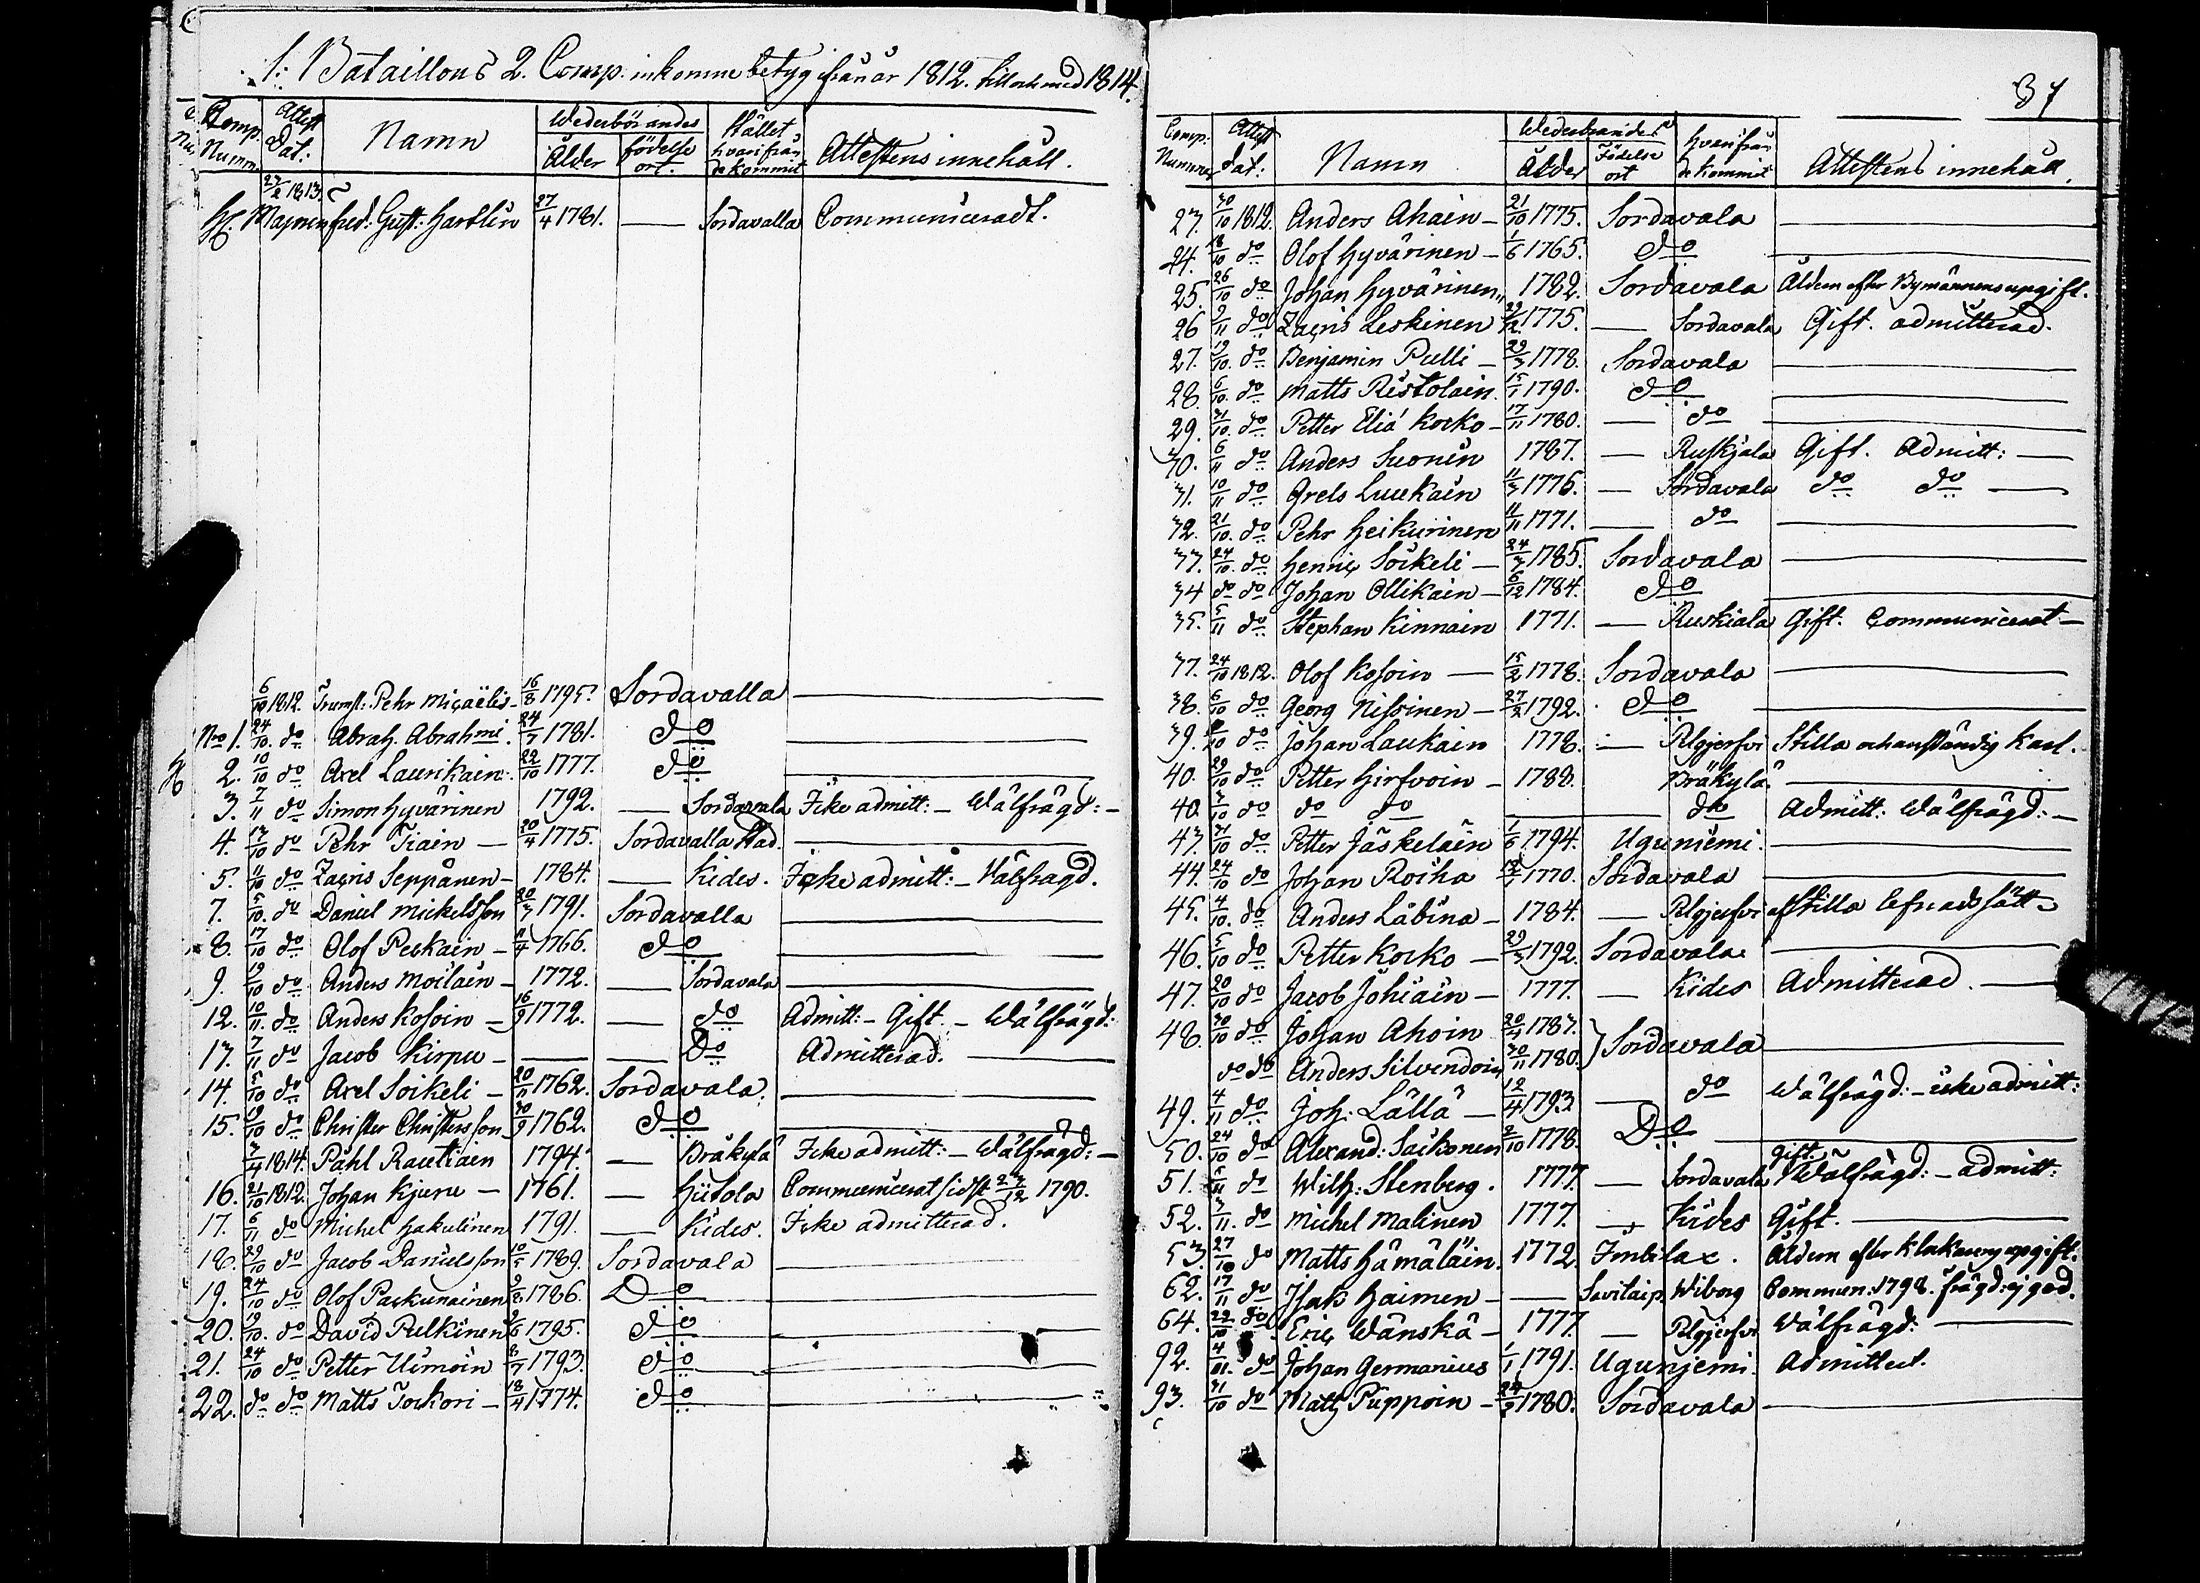 1: Bataillons 2. Comp. inkomne betyg ifrån år 1812. till och med 1814.
Comp. Numm. Attest Dat: Namn Wederbörandes Ålder födelse ort. Stället hvarifrån de kommit Attestens innehåll.
27/2 1813
Fred: Gust: Hartlin 27/4 1781. — Sordavalla Communiceradt.
6/10 1812. Trumsl: Pehr Miçaëlis 16/8 1795. Sordavalla —
No 1. 24/10. do Abrah. Abrahmi. 24/7 1781. do —
2. 10/10 do Axel Laurikain 22/10 1777. do —
3. 7/11 do Simon Hyvärinen 1792. — Sordavala Icke admitt: — Wälfrägd: —
4. 13/10 do Pehr Tiain — 20/4 1775. Sordavalla Stad. —
5. 11/10 do Zaçris Seppänen — 1784. — Kides. Icke admitt: — Wälfrägd.
7. 5/10. do Daniel Mickelsson 20/3 1791. Sordavalla —
8. 17/10 do Olof Peskain — 11/4 1766. do —
9. 19/10 do Anders Moilain — 1772. — Sordavala —
12. 10/11. do Anders Kosoin — 16/9 1772. — do Admitt: — Gift — Wälfrägd:
13. 7/11 do Jacob Kirpu — — — Do Admitterad. —
14. 5/10 do Axel Soikeli — 20/11 1762. Sordavala. —
15. 19/10 do Christer Christersson 30/9 1762. do —
3/4 1814. Påhl Rautiain 1794. — Bräkylä Icke admitt: — Wälfrägd: —
16. 21/10 1812. Johan Kjuru — 1761. — Hiitola Communicerat sidst 23/12 1790.
17. 6/11 do Michel Hakulinen 1791. — Kides. Icke admitterad.
18. 29/10 do Jacob Danielsson 10/5 1789. Sordavala —
19. 24/10 do Olof Paskunainen 9/8 1786. Do —
20. 19/10. do David Pulkinen 9/6 1795. do —
21. 24/10 do Petter Uimoin 8/7 1793. do —
22. do do Matts Torkori — 18/4 1774. do —
37
Comp: Nummer Attest dat: Namn Wederbörandes Ålder Födelse ort hvarifrån de kommit Attestens innehåll.
23. 30/10 1812. Anders Ahain — 21/10 1775. Sordavala —
24. 18/10 do Olof Hyvärinen — 1/6 1765. do —
25. 26/10 do Johan Hyvärinen 1782. Sordavala Åldern efter Bymännens upgift.
26 9/11 do Zaçris Leskinen 21/12 1775. — Sordavala Gift. admitterad.
27. 19/10. do Benjamin Pulli — 29/3 1778. Sordavala —
28. 6/10. do Matts Ristolain 15/1 1790. do —
29. 31/10. do Petter Eliä Korko — 17/11 1780. — do —
30. 6/11 do Anders Suonin 1787. — Ruskjala Gift. Admitt: —
31. 10/11 do Grels Luukain 11/3 1776. — Sordavala do do —
32. 21/10. do Pehr Heikurinen 11/11 1771. — do —
33. 24/10. do Henriç Soikeli — 24/3 1785. Sordavala —
34 do do Johan Ollikain — 6/12 1784. do —
35. 5/11 do Stephan Kinnain 1771. — Ruskiala Gift. Communicerat —
37. 24/10 1812. Olof Kosoin — 15/2 1778. Sordavala —
38. 6/10 do Georg Nissinen — 27/2 1792. do —
39. do Johan Laukain 1778. — Pelgjersvi Stilla och anständig Karl.
40. 29/10 do Petter Hirfvoin — 1788. Bräkylä —
40. 3/10 do do do — do Admitt: Wälfrägd: —
43. 31/10 do Petter Jäskeläin 1/6 1794. Uguniemi. —
44. 24/10 do Johan Roiha 1770. Sordavala —
45. 4/10. do Anders Läbina — 1784. — Pelgjersvi af Stilla lefnadssätt
46. 5/10 do Petter Korko — 29/3 1792. Sordavala —
47. 20/10 do Jacob Johiain — 1777. — Kides Admitterad. —
48. 30/10 do Johan Ahoin 20/4 1787. } Sordavala —
do do Anders Silvendoin 30/11 1780.
49. 4/11 do Joh: Lällä — 12/4 1793 — do Wälfrägd: — icke admitt:
50. 24/10 do Alexand: Saikonen 2/10 1778. Do —
51. 5/11 do Wilh: Stenberg. 1777. — Sordavala gift. Wälfrägd: — admitt:
52. 3/11. do Michel Malinen 1777. — Kides Gift. —
53. 27/10 do Matts Hämäläin. 1772. Imbilax. Åldern efter Klokarens upgift.
62. 17/11 do Isak Haimen — — Savitaip. Wiborg Commun: 1798. frägd: ej god.
64. 22/10 do Eriç Wänskä — 1777. — Pelgjersvi Wälfrägd: —
92. 4/01. do Johan Germanius 1/1 1791. Ugunjemi. Admitterd.
93. 31/10 do Matts Puppoin — 24/2 1780. Sordavala —